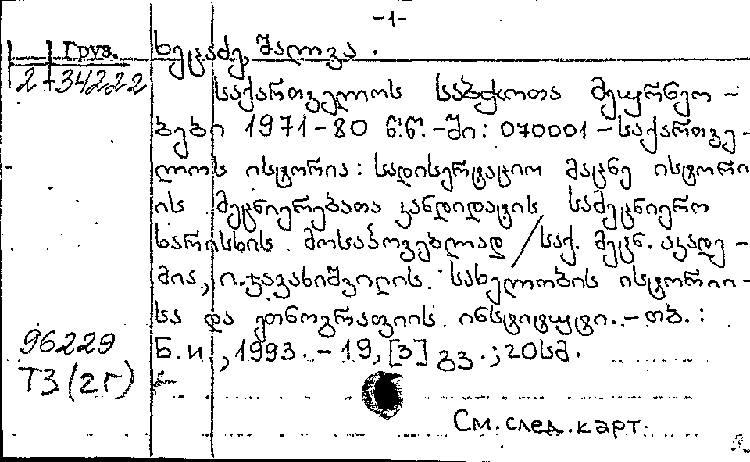 -1-
Груз.
2-34222
ხეცაძე, შალვა.
საქართველოს საბჭოთა მეურნეო-
ბები 1971-80 წ.წ.-ში: 070001 - საქართვე-
ლოს ისტორია: სადისერტაციო მაცნე ისტორი
ის მეცნიერებათა კანდიდატის სამეცნიერო
ხარისხის მოსაპოვებლად / საქ. მეცნ. აკადე-
მია, ი. ჯავახიშვილის სახელობის ისტორიი-
სა და ეთნოგრაფიის ინსტიტუტი. - თბ.:
Б.и., 1993. - 19, [3] გვ.; 20 სმ.
96229
ТЗ (2г)
См. след. карт.